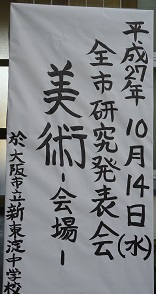 平成27年 10月14日(水)
全市研究発表会
美術-会場-
於大阪市立新東淀中学校